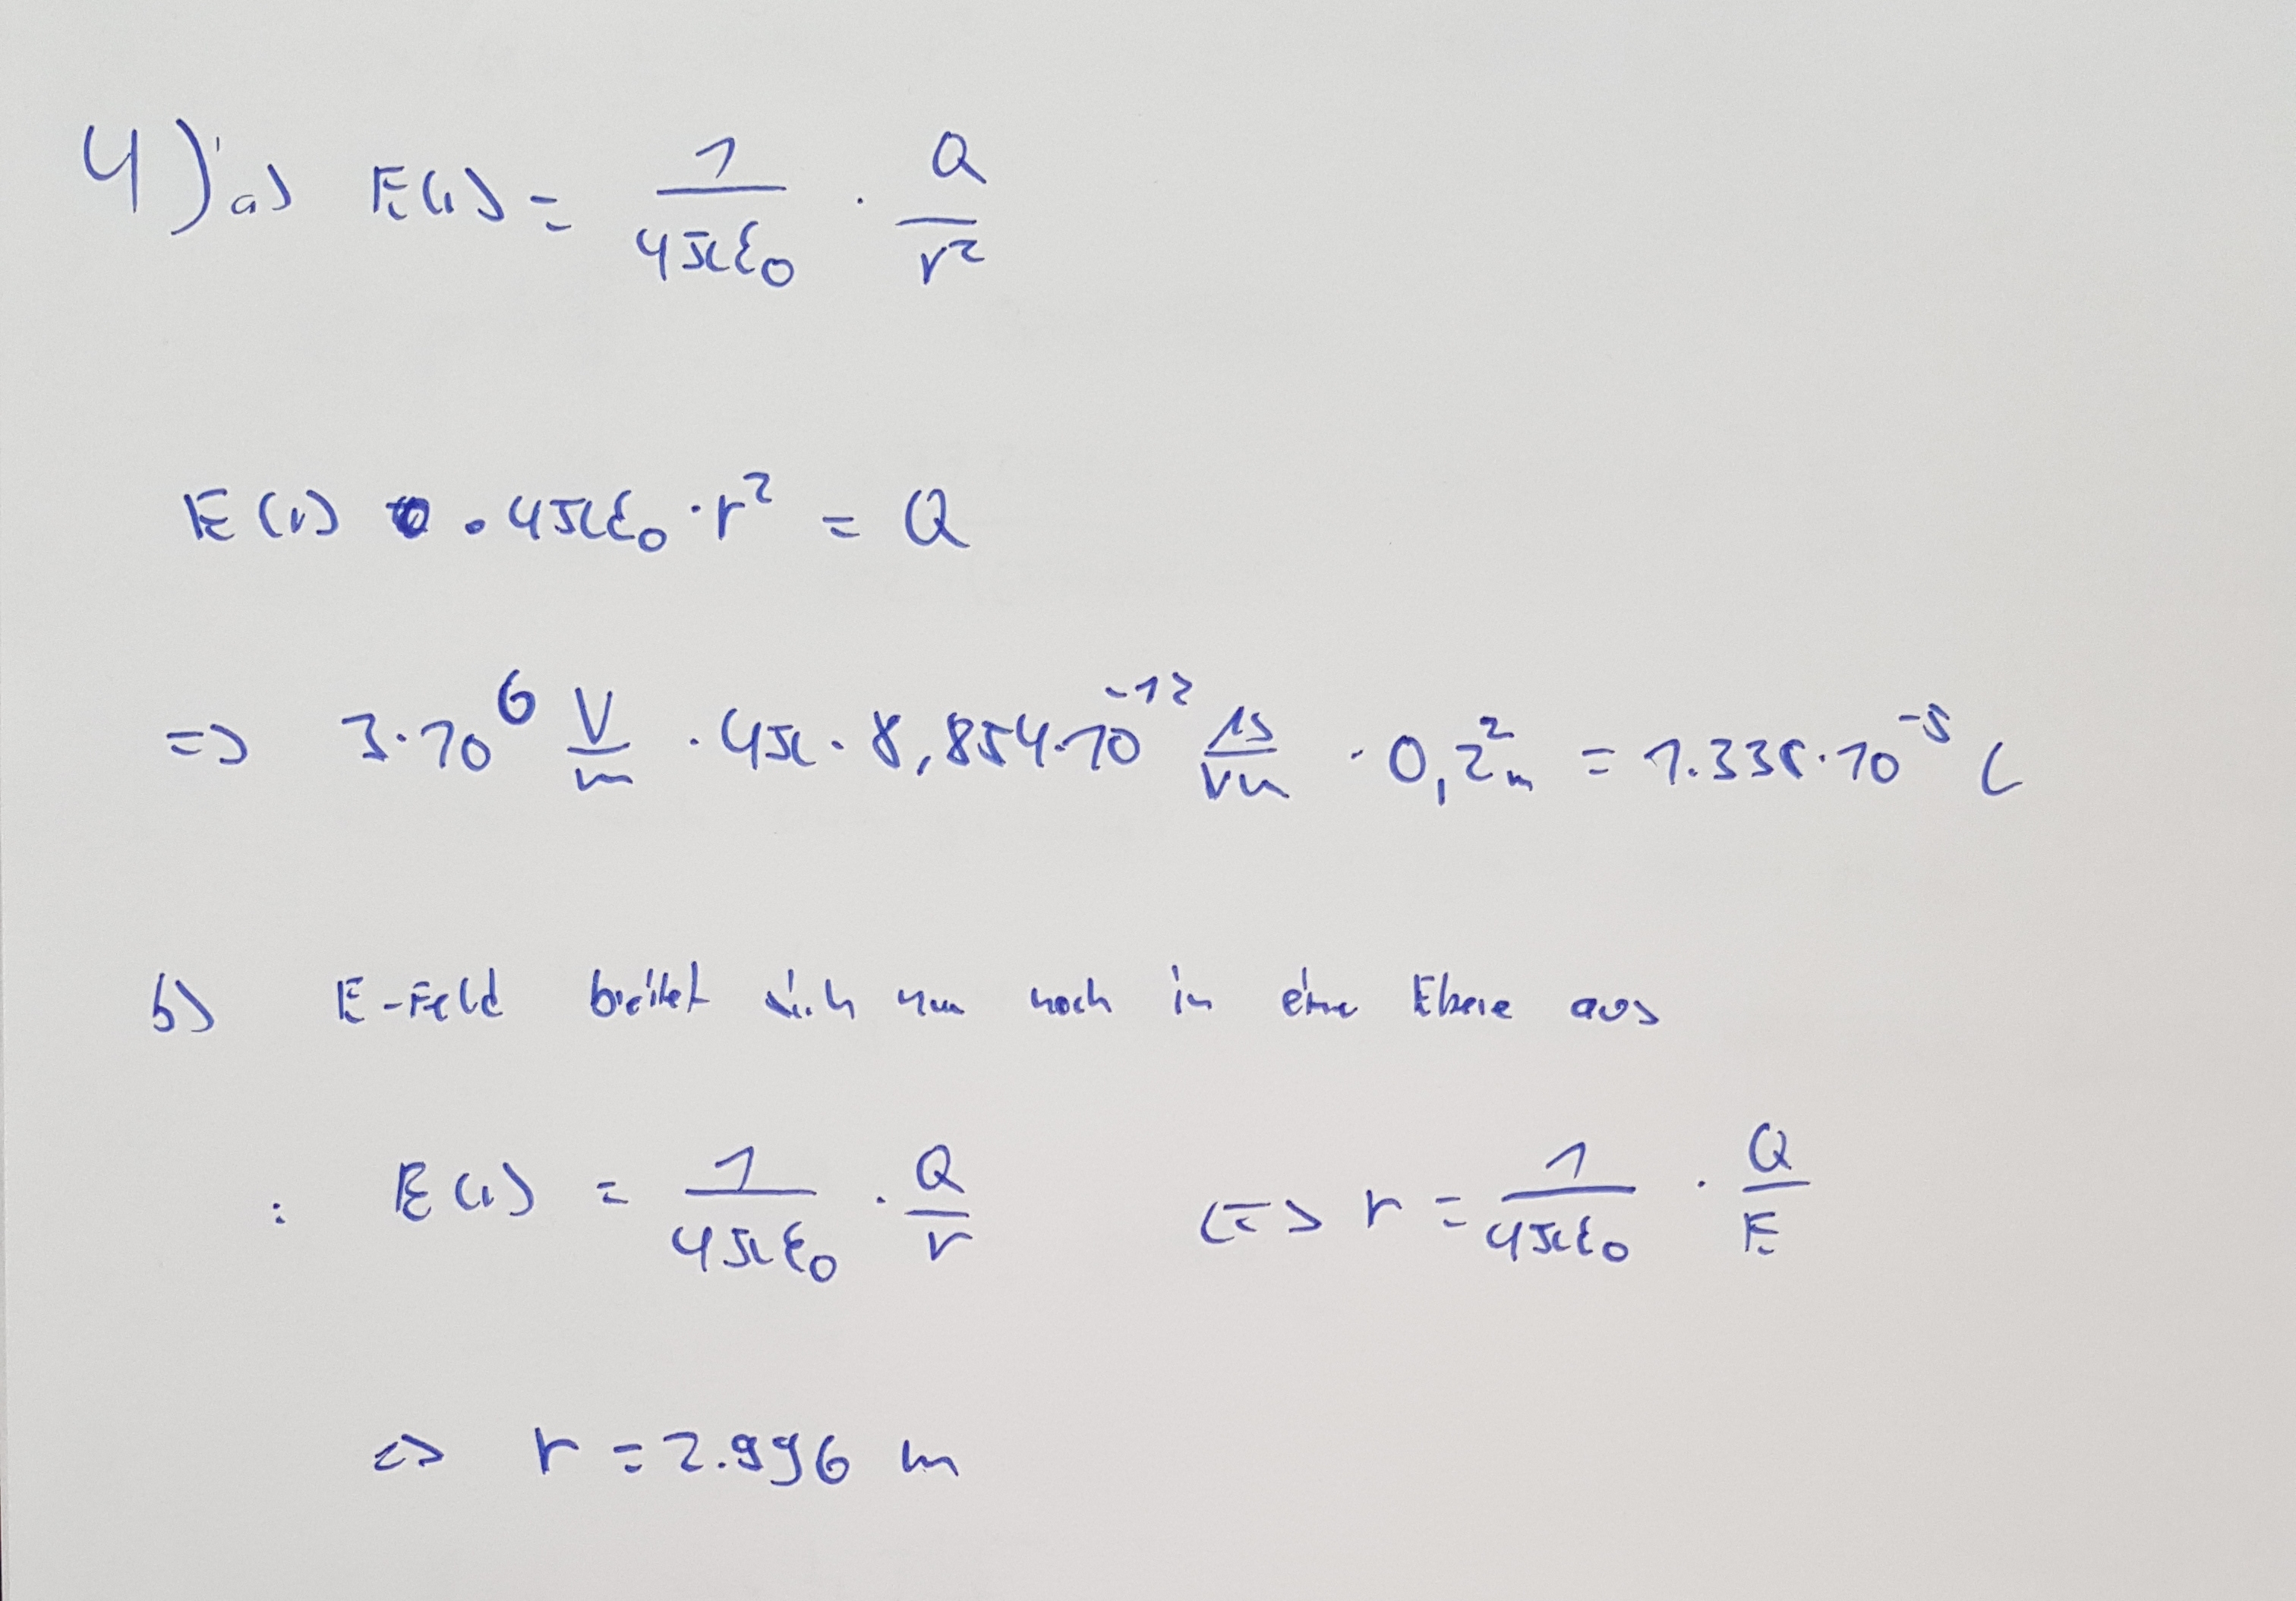 4) a) E(r) = 1/(4πε₀) · Q/r²
E(r) · 4πε₀ · r² = Q
=> 3·10⁶ V/m · 4π · 8,854·10⁻¹² As/Vm · 0,2²m = 1.335·10⁻⁵ C
b) E-Feld breitet sich nun noch in eine Ebene aus
: E(r) = 1/(4πε₀) · Q/r <=> r = 1/(4πε₀) · Q/E
<=> r = 2.996 m